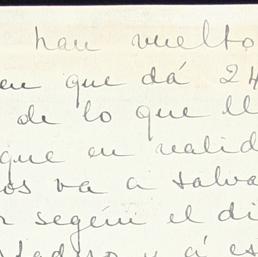 han vuelto
en que dá 24
de lo que ll
que en realid
os va a salva
segúin el di
y á es